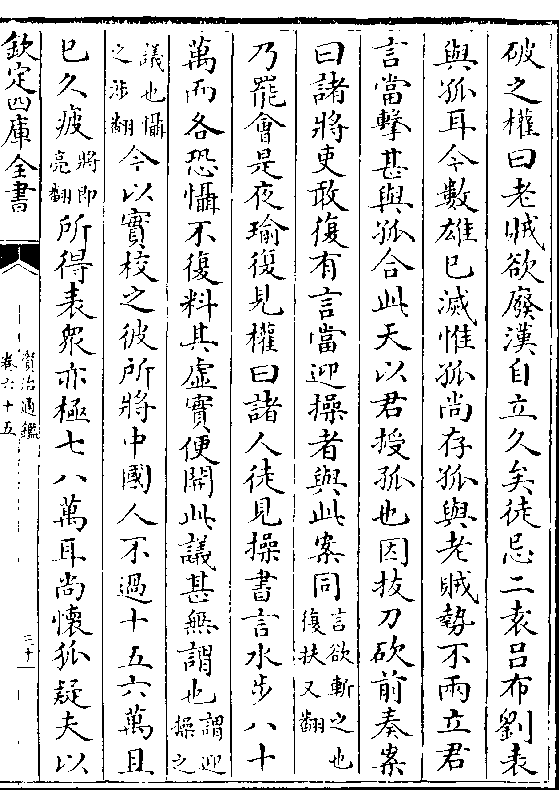 破之權曰老賊欲廢漢自立久矣徒忌二袁呂布劉表
與孤耳今數雄已滅惟孤尚存孤與老賊勢不兩立君
言當擊甚與孤合此天以君授孤也因拔刀斫前奏案
曰諸將吏敢復有言當迎操者與此案同言欲斬之也復扶又翻
乃罷會是夜瑜復見權曰諸人徒見操書言水步八十
萬而各恐懾不復料其虛實便開此議甚無謂也謂迎操之
議也懾之涉翻今以實校之彼所將中國人不過十五六萬且
已久疲將即亮翻所得表衆亦極七八萬耳尚懷狐疑夫以
欽定四庫全書
資治通鑑
卷六十五
二十